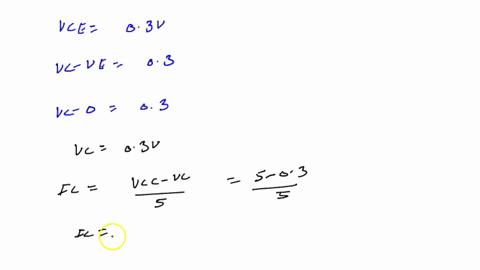 VCE = 0.3V
VC-VE = 0.3
VC-0 = 0.3
VC = 0.3V
IC = VCC-VC / 5 = 5-0.3 / 5
IC =